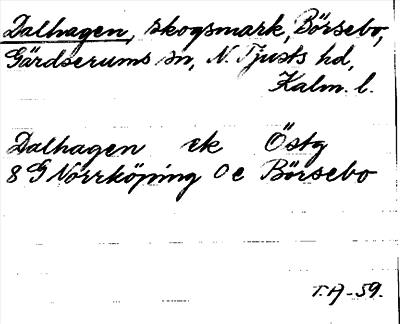 Dalhagen, skogsmark, Börsebo,
Gärdserums sn, N. Tjusts hd,
Kalm. l.
Dalhagen ek Östg
8 G Norrköping 0 e Börsebo
T.A-59.